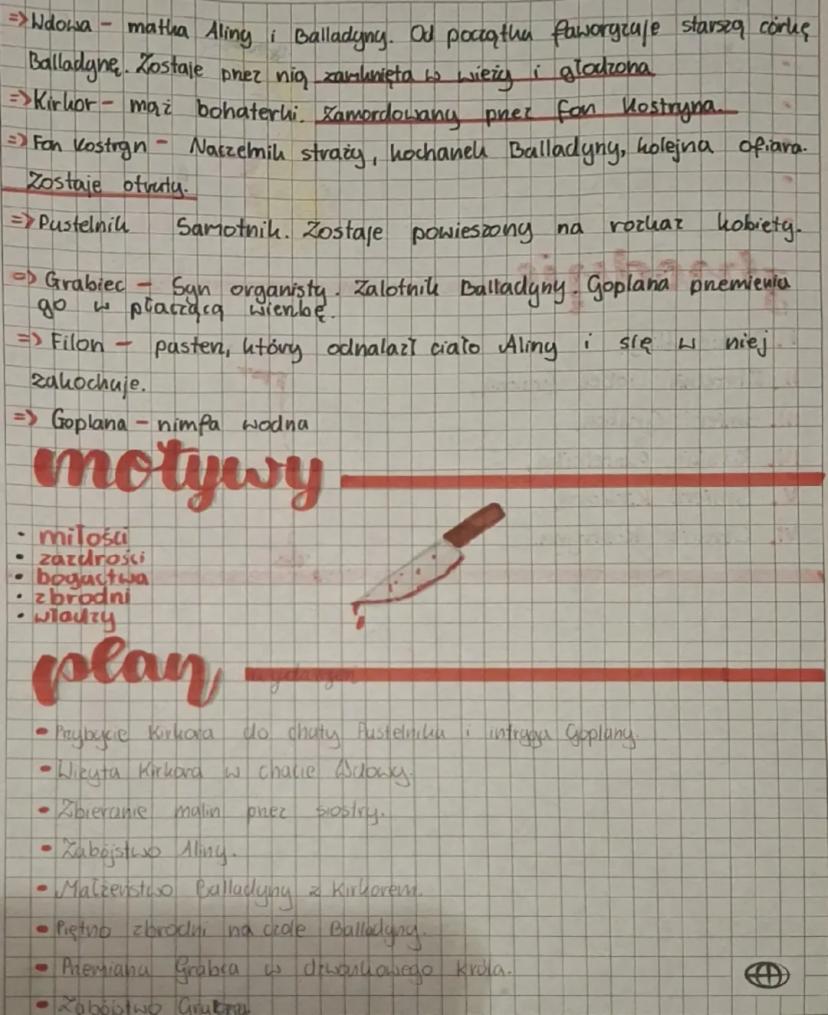 => Wdowa - matka Aliny i Balladyny. Od początku faworyzuje starszą córkę
Balladynę. Zostaje przez nią zamknięta w wieży i głodzona
=> Kirkor - mąż bohaterki. Zamordowany przez fon Kostryna.
=> Fon Kostryn - Naczelnik straży, kochanek Balladyny, kolejna ofiara.
Zostaje otruty.
=> Pustelnik Samotnik. Zostaje powieszony na rozkaz kobiety.
=> Grabiec - Syn organisty. Zalotnik Balladyny. Goplana przemienia
go w płaczącą wierzbę.
=> Filon - pasterz, który odnalazł ciało Aliny i się w niej
zakochuje.
=> Goplana - nimfa wodna
motywy
• miłości
• zazdrości
• bogactwa
• zbrodni
• władzy
plan
wydarzeń
• Przybycie Kirkora do chaty Pustelnika i intryga Goplany.
• Wizyta Kirkora w chacie Wdowy.
• Zbieranie malin przez siostry.
• Zabójstwo Aliny.
• Małżeństwo Balladyny z Kirkorem.
• Piętno zbrodni na czole Balladyny.
• Przemiana Grabca w dzwonkowego króla.
• Zabójstwo Grabca